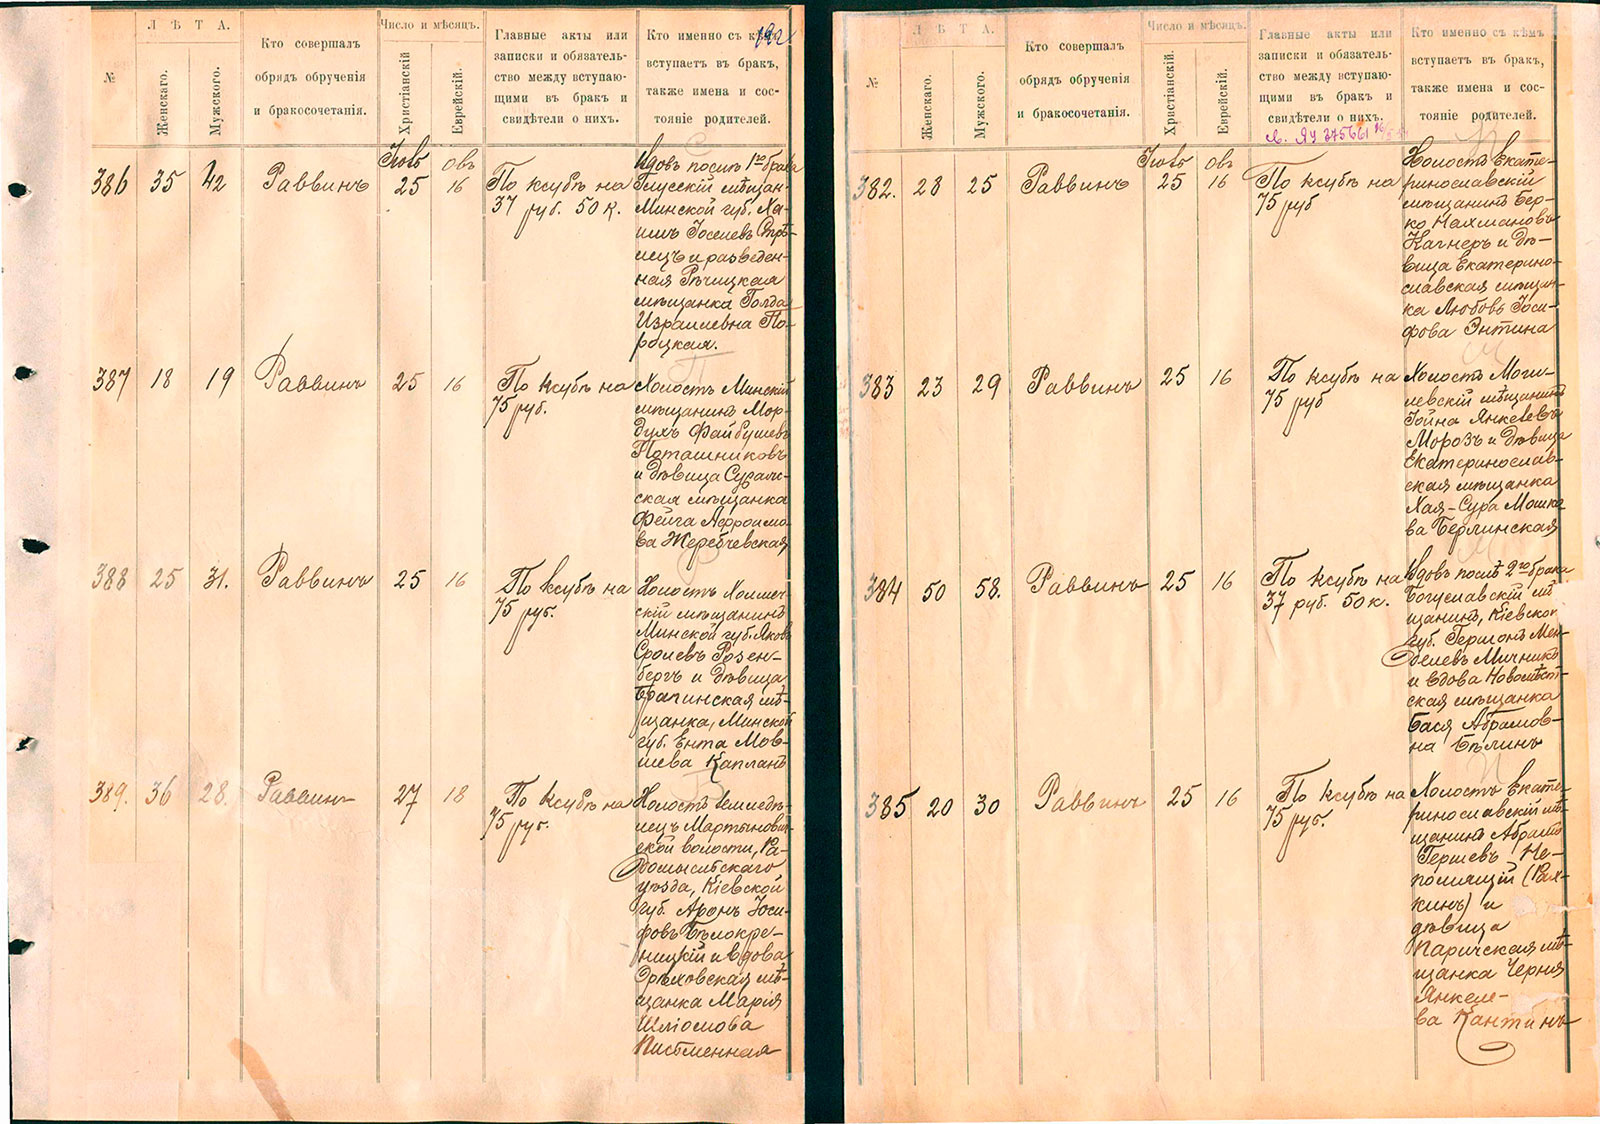 №
ЛѢТА.
Женскаго.
Мужского.
Кто совершалъ
обрядъ обрученія
и бракосочетанія.
Число и мѣсяцъ.
Христіанскій
Еврейскій.
Главные акты или
записки и обязатель-
ство между вступаю-
щими въ бракъ и
свидѣтели о нихъ.
Кто именно съ кѣмъ
вступаетъ въ бракъ,
также имена и сос-
тояніе родителей.
192
386
35
42
Раввинъ
25
16
По ксубѣ на
37 руб. 50 к.
Вдовъ послѣ 1го брака
Глусскій мѣщан-
Минской губ. Ха-
имъ Іоселевъ
и разведен-
ная Рѣчицкая
мѣщанка Голда
Израилевна По-
роцкая.
387
18
19
Раввинъ
25
16
По ксубѣ на
75 руб.
Холостъ Минскій
мѣщанинъ Мор-
духъ Файбушевъ
Поташниковъ
и дѣвица Суражс-
ская мѣщанка
Фейга Афроимо-
ва Жеребчевская
388
25
31.
Раввинъ
25
16
По ксубѣ на
75 руб.
Холостъ Холмеч-
скій мѣщанинъ
Минской губ. Яковъ
Сролевъ Розен-
бергъ и дѣвица
Брагинская мѣ-
щанка, Минской
губ. Ента Мов-
шева Капланъ
389.
36
28.
Раввинъ
27
18
По ксубѣ на
75 руб.
Холостъ землевдѣ-
лецъ Мартынович-
ской волости, Ра-
домысльскаго
уѣзда, Кіевской
губ. Аронъ Іоси-
фовъ Бѣлокре-
ницкій и вдова
Орѣховская мѣ-
щанка Марія
Шліомова
Письменная
№
ЛѢТА.
Женскаго.
Мужского.
Кто совершалъ
обрядъ обрученія
и бракосочетанія.
Число и мѣсяцъ.
Христіанскій.
Еврейскій.
Главные акты или
записки и обязатель-
ство между вступаю-
щими въ бракъ и
свидѣтели о нихъ.
Кто именно съ кѣмъ
вступаетъ въ бракъ,
также имена и сос-
тояніе родителей.
382.
28
25
Раввинъ
25
16
По ксубѣ на
75 руб
Холостъ Екате-
ринославскій
мѣщанинъ Бер-
ко Нахмановъ
Кагнеръ и дѣ-
вица Екатерино-
славская мѣщан-
ка Любовь Іоси-
фова Энтина
383
23
29
Раввинъ
25
16
По ксубѣ на
75 руб
Холостъ Моги-
левскій мѣщанинъ
Іойна Янкелевъ
Морозъ и дѣвица
Екатеринослав-
ская мѣщанка
Хая-Сура Мошко
ва Берлинская
384
50
58.
Раввинъ
25
16
По ксубѣ на
37 руб. 50 к.
Вдовъ послѣ 2го брака
Богуславскій мѣ
щанинъ, Кіевской
губ. Гершонъ Мен-
делевъ Мичникъ
и вдова Новомѣст-
ская мѣщанка
Бася Абрамов-
на Бѣлинъ
385
20
30
Раввинъ
25
16
По ксубѣ на
75 руб.
Холостъ Екате-
ринославскій мѣ-
щанинъ Абрамъ
Гершевъ Не-
помнящій (Рах-
кинъ) и
дѣвица
Паричская мѣ-
щанка Черня
Янкеле-
ва Кантинъ